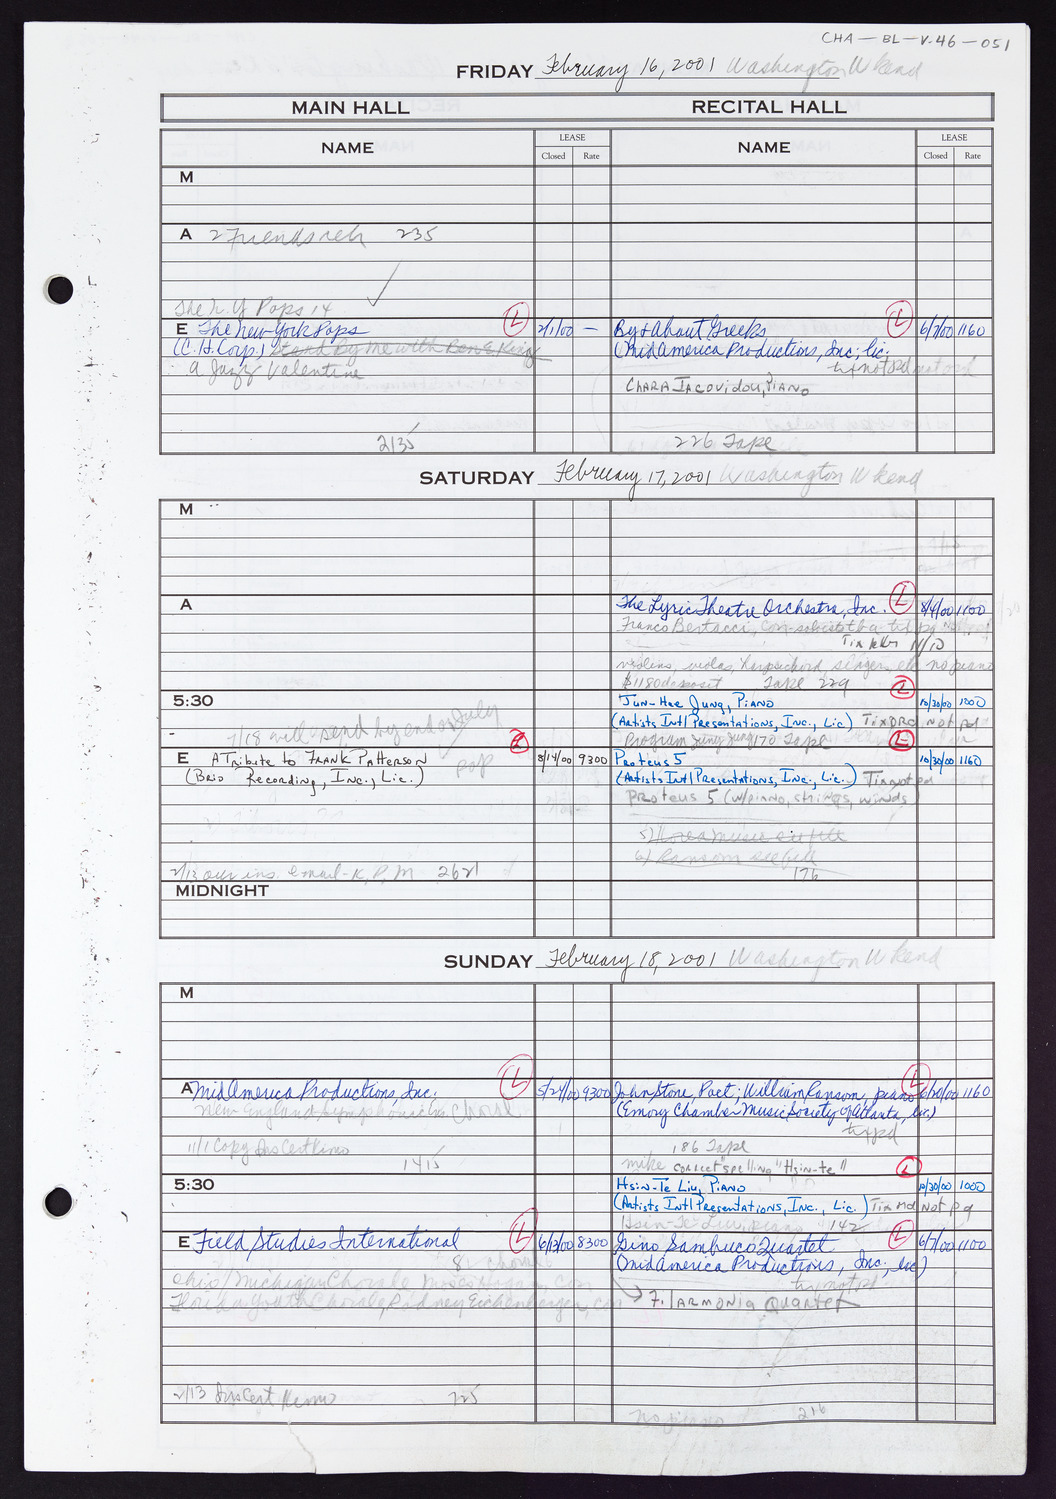 CHA-BL-V.46-051
FRIDAY February 16, 2001 Washington W kend
MAIN HALL RECITAL HALL
NAME LEASE NAME LEASE
Closed Rate Closed Rate
M
A 2 Friends reh 235
The N.Y Pops 14
E The New York Pops L 2/1/00 — By & About Greeks L 6/7/00 1160
(C.H. Corp.) Stand By Me with Ben E. King (MidAmerica Productions, Inc; lic.
a Jazz Valentine tx not pd not orch
Chara Iacovidou, Piano
2135 226 Tape
SATURDAY February 17, 2001 Washington W kend
M
A The Lyric Theatre Orchestra, Inc. L 8/4/00 1100
Franco Bertacci, con
11/10
violins, violas, harpsichord, singers, no piano
$1180 deposit Tape 229 L
5:30 Jun-Hae Jung, Piano 10/30/00 1000
(Artists Int'l Presentations, Inc., Lic) Tix Ord Not pd
7/18 will send by end of July Program Jung 170 Tape L
E A Tribute to Frank Patterson L 8/14/00 9300 Proteus 5 10/30/00 1160
(Brio Recording, Inc., Lic.) pop (Artists Int'l Presentations, Inc., Lic.) Tix not pd
Proteus 5 (w/piano, strings, winds)
5) Korea music see file
6) Ransom see file
2/13 our ins. email-K, P, M 2621 176
MIDNIGHT
SUNDAY February 18, 2001 Washington W kend
M
A MidAmerica Productions, Inc. L 5/24/00 9300 John Stone, Poet; William Ransom, piano L 6/20/00 1160
New England Symphonic Choral (Emory Chamber Music Society of Atlanta, lic.)
tx pd
11/1 Copy Ins Cert Kino 186 Tape
1415 mike correct spelling "Hsin-te" L
5:30 Hsin-Te Liu, Piano 10/30/00 1000
(Artists Int'l Presentations, Inc., Lic.) Tix Ord Not pd
Hsin-Te Liu, piano 142
E Field Studies International L 6/13/00 8300 Gino Sambuco Quartet L 6/7/00 1100
8 choral (MidAmerica Productions, Inc; lic)
Ohio/Michigan Chorale con tx not pd
Florida Youth Chorale, Rodney Eichenberger, con F. Iarmonia Quartet
2/13 Ins Cert Kemo 725
no piano 216